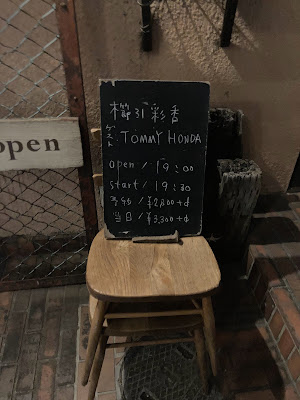 open
櫛引彩香
ゲスト TOMMY HONDA
open / 19:00
start / 19:30
予約 / ¥2,800+d
当日 / ¥3,300+d